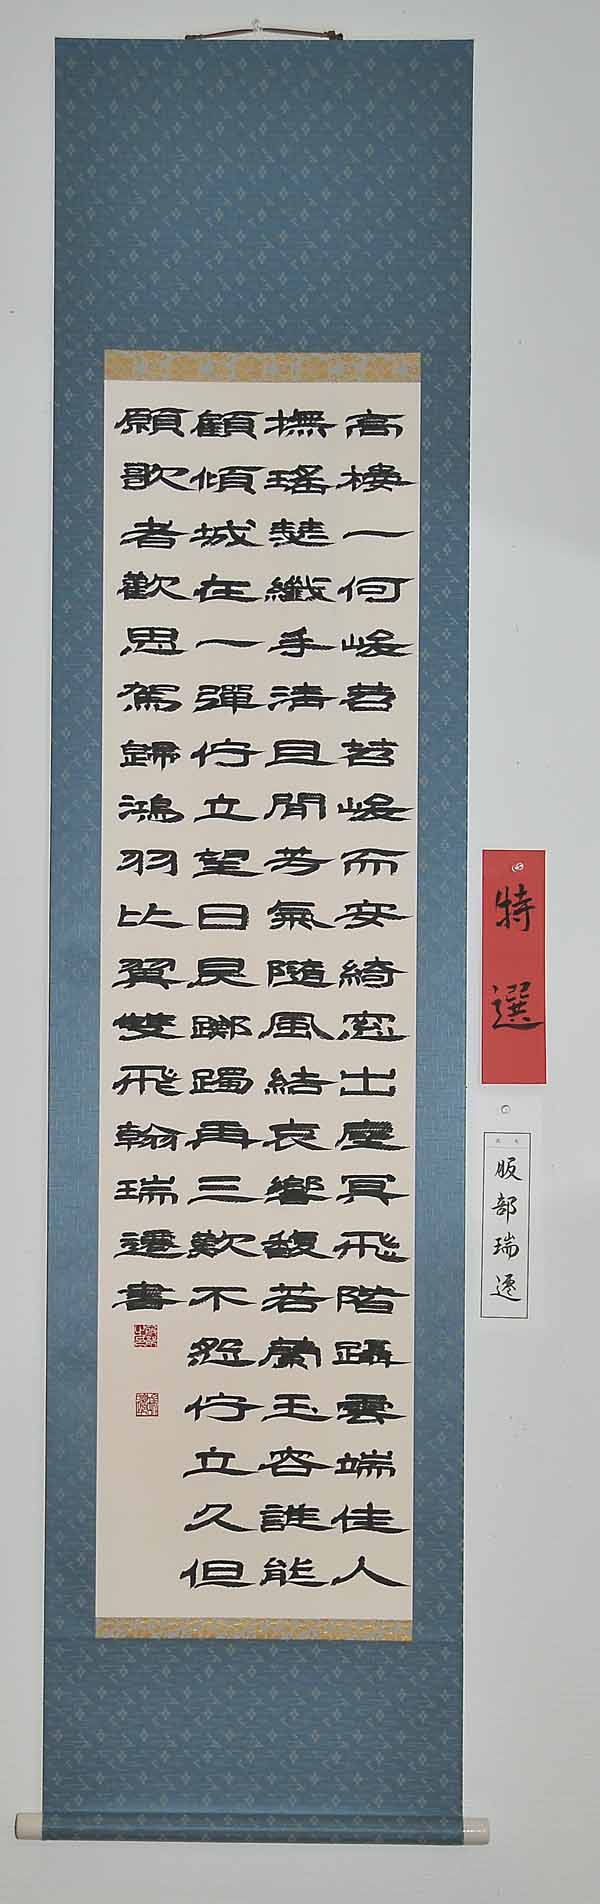 高樓一何峻苕苕峻而安綺窓出塵冥飛階躡雲端佳人
撫瑤瑟纖手清且閒芳氣隨風結哀響馥若蘭玉容誰能
顧傾城在一彈佇立望日昃躑躅再三歎不怨佇立久但
願歌者歡思駕歸鴻羽比翼雙飛翰瑞遷書
特選
服部瑞遷